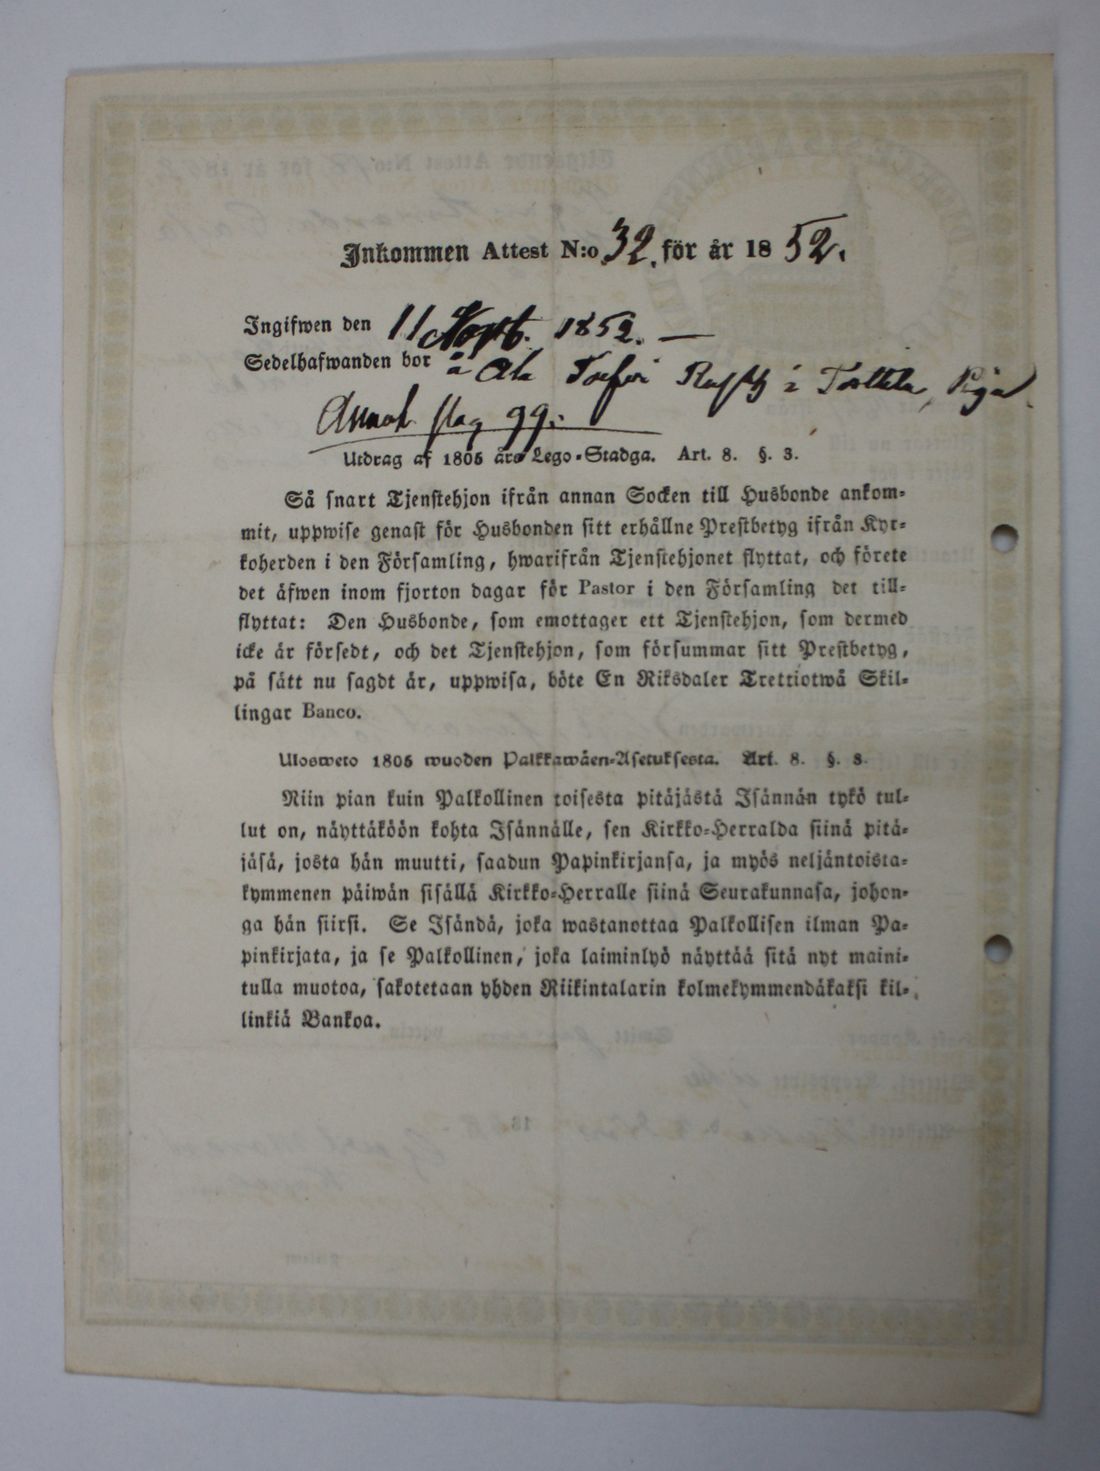 Inkommen Attest N:o 32. för år 1852.
Ingifwen den 11 Novb. 1852. —
Sedelhafwanden bor å Ala i
pag 99.
Utdrag af 1805 års Lego-Stadga. Art. 8. §. 3.
Så snart Tjenstehjon ifrån annan Socken till Husbonde ankom-
mit, uppwise genast för Husbonden sitt erhållne Prestbetyg ifrån Kyr-
koherden i den Församling, hwarifrån Tjenstehjonet flyttat, och förete
det äfwen inom fjorton dagar för Pastor i den Församling det till-
flyttat: Den Husbonde, som emottager ett Tjenstehjon, som dermed
icke är försedt, och det Tjenstehjon, som försummar sitt Prestbetyg,
på sätt nu sagdt är, uppwisa, böte En Riksdaler Trettiotwå Skil-
lingar Banco.
Ulosweto 1805 wuoden Palkkawäen-Asetuksesta. Art. 8. §. 3.
Niin pian kuin Palkollinen toisesta pitäjästä Isännän tykö tul-
lut on, näyttäköön kohta Isännälle, sen Kirkko-Herralda siinä pitä-
jäsä, josta hän muutti, saadun Papinkirjansa, ja myös neljäntoista-
kymmenen päiwän sisällä Kirkko-Herralle siinä Seurakunnasa, johon-
ga hän siirsi. Se Isändä, joka wastanottaa Palkollisen ilman Pa-
pinkirjata, ja se Palkollinen, joka laiminlyö näyttää sitä nyt maini-
tulla muotoa, sakotetaan yhden Riikintalarin kolmekymmendäkaksi kil-
linkiä Bankoa.